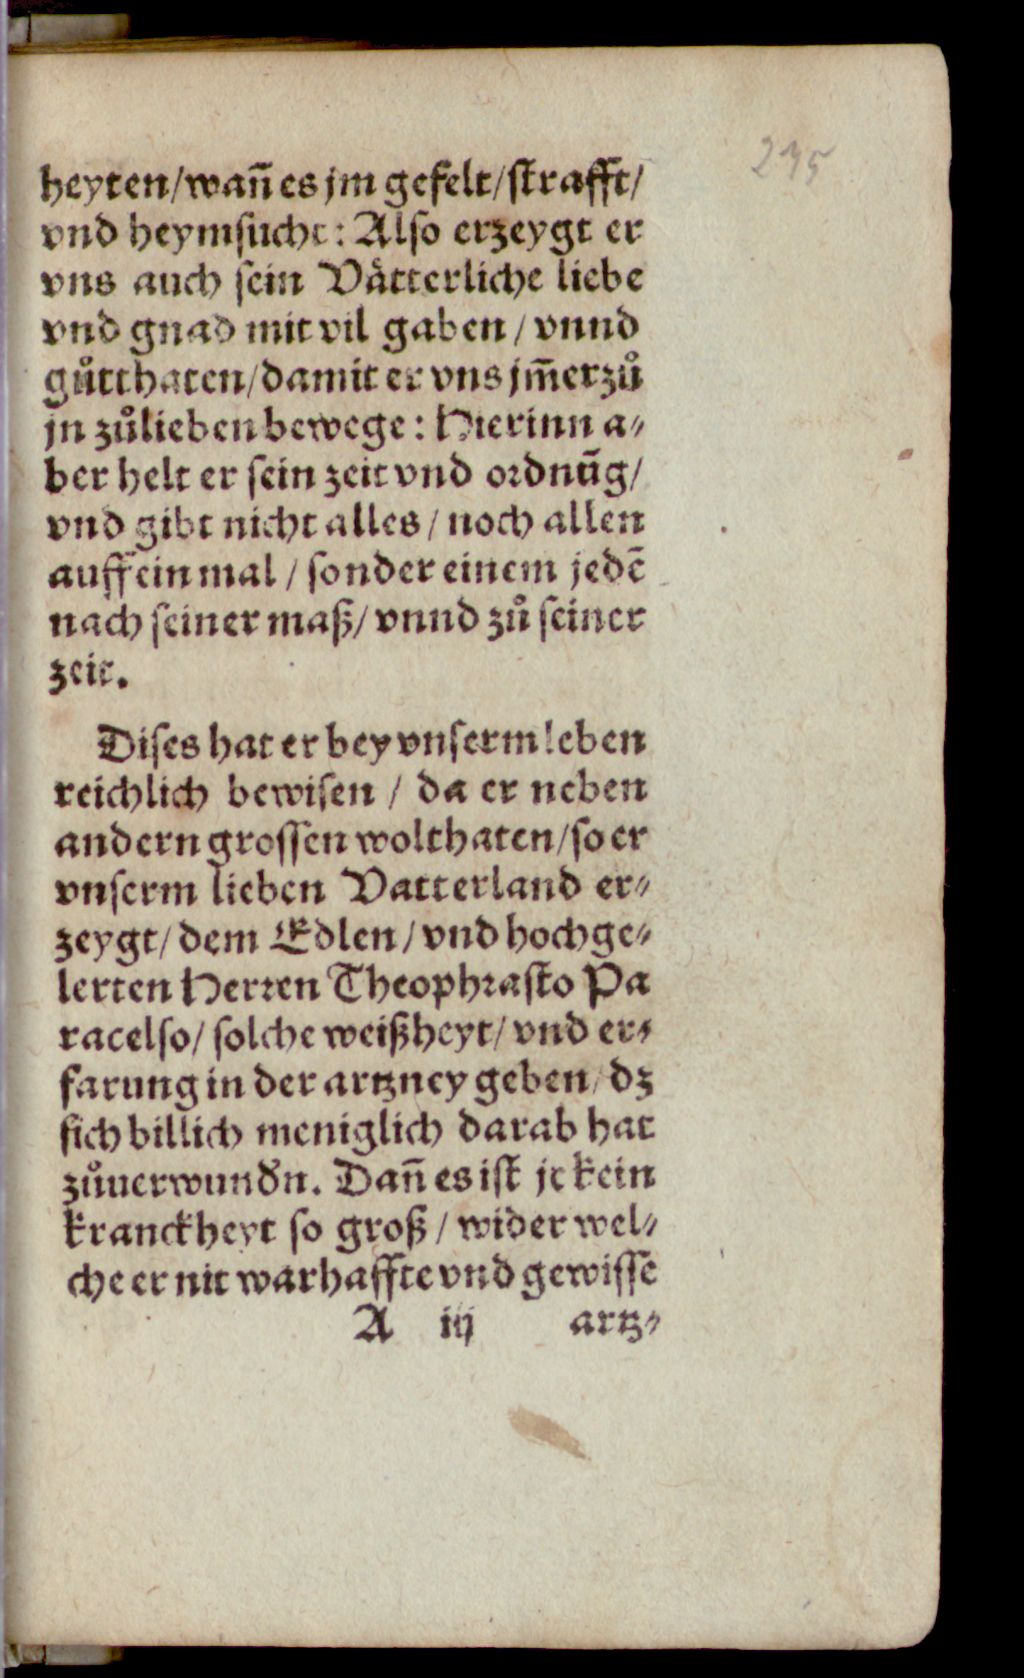 235
heyten/wañ es jm gefelt/strafft/
vnd heymsucht: Also erzeygt er
vns auch sein Vätterliche liebe
vnd gnad mit vil gaben / vnnd
gůtthaten/damit er vns jm̃erzů
jn zůlieben bewege: Hierinn a⸗
ber helt er sein zeit vnd ordnũg/
vnd gibt nicht alles / noch allen
auff ein mal / sonder einem jedẽ
nach seiner maß/ vnnd zů seiner
zeit.
Dises hat er bey vnserm leben
reichlich bewisen / da er neben
andern grossen wolthaten/so er
vnserm lieben Vatterland er⸗
zeygt/ dem Edlen/ vnd hochge⸗
lerten Herren Theophrasto Pa
racelso/ solche weißheyt/ vnd er⸗
farung in der artzney geben/ dz
sich billich meniglich darab hat
zůuerwundñ. Dañ es ist je kein
kranckheyt so groß / wider wel⸗
che er nit warhaffte vnd gewisse
A iij artz⸗